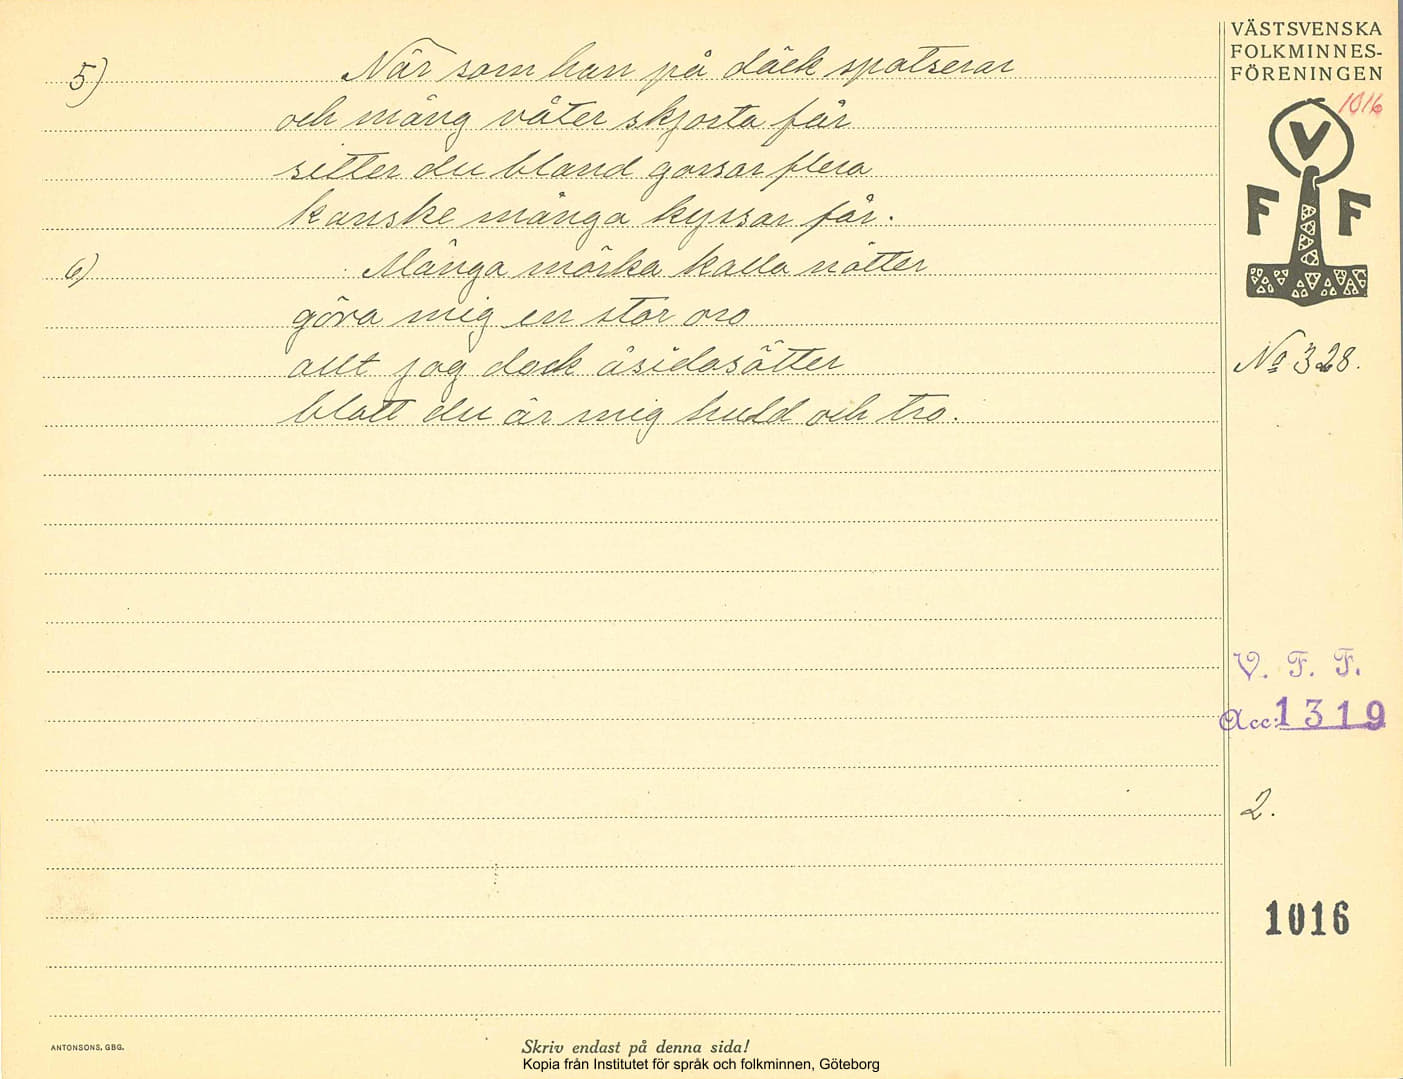 5) När som han på däck spatserar
och mång våter skjorta får
sitter du bland gossar flera
kanske många kyssar får.
6) Många mörka kalla nätter
göra mig en stor oro
allt jag dock åsidosätter
blott du är mig huld och tro.
VÄSTSVENSKA
FOLKMINNES-
FÖRENINGEN
1016
V
F F
No 328.
V. F. F.
Acc: 1319
2.
1016
ANTONSONS, GBG.
Skriv endast på denna sida!
Kopia från Institutet för språk och folkminnen, Göteborg